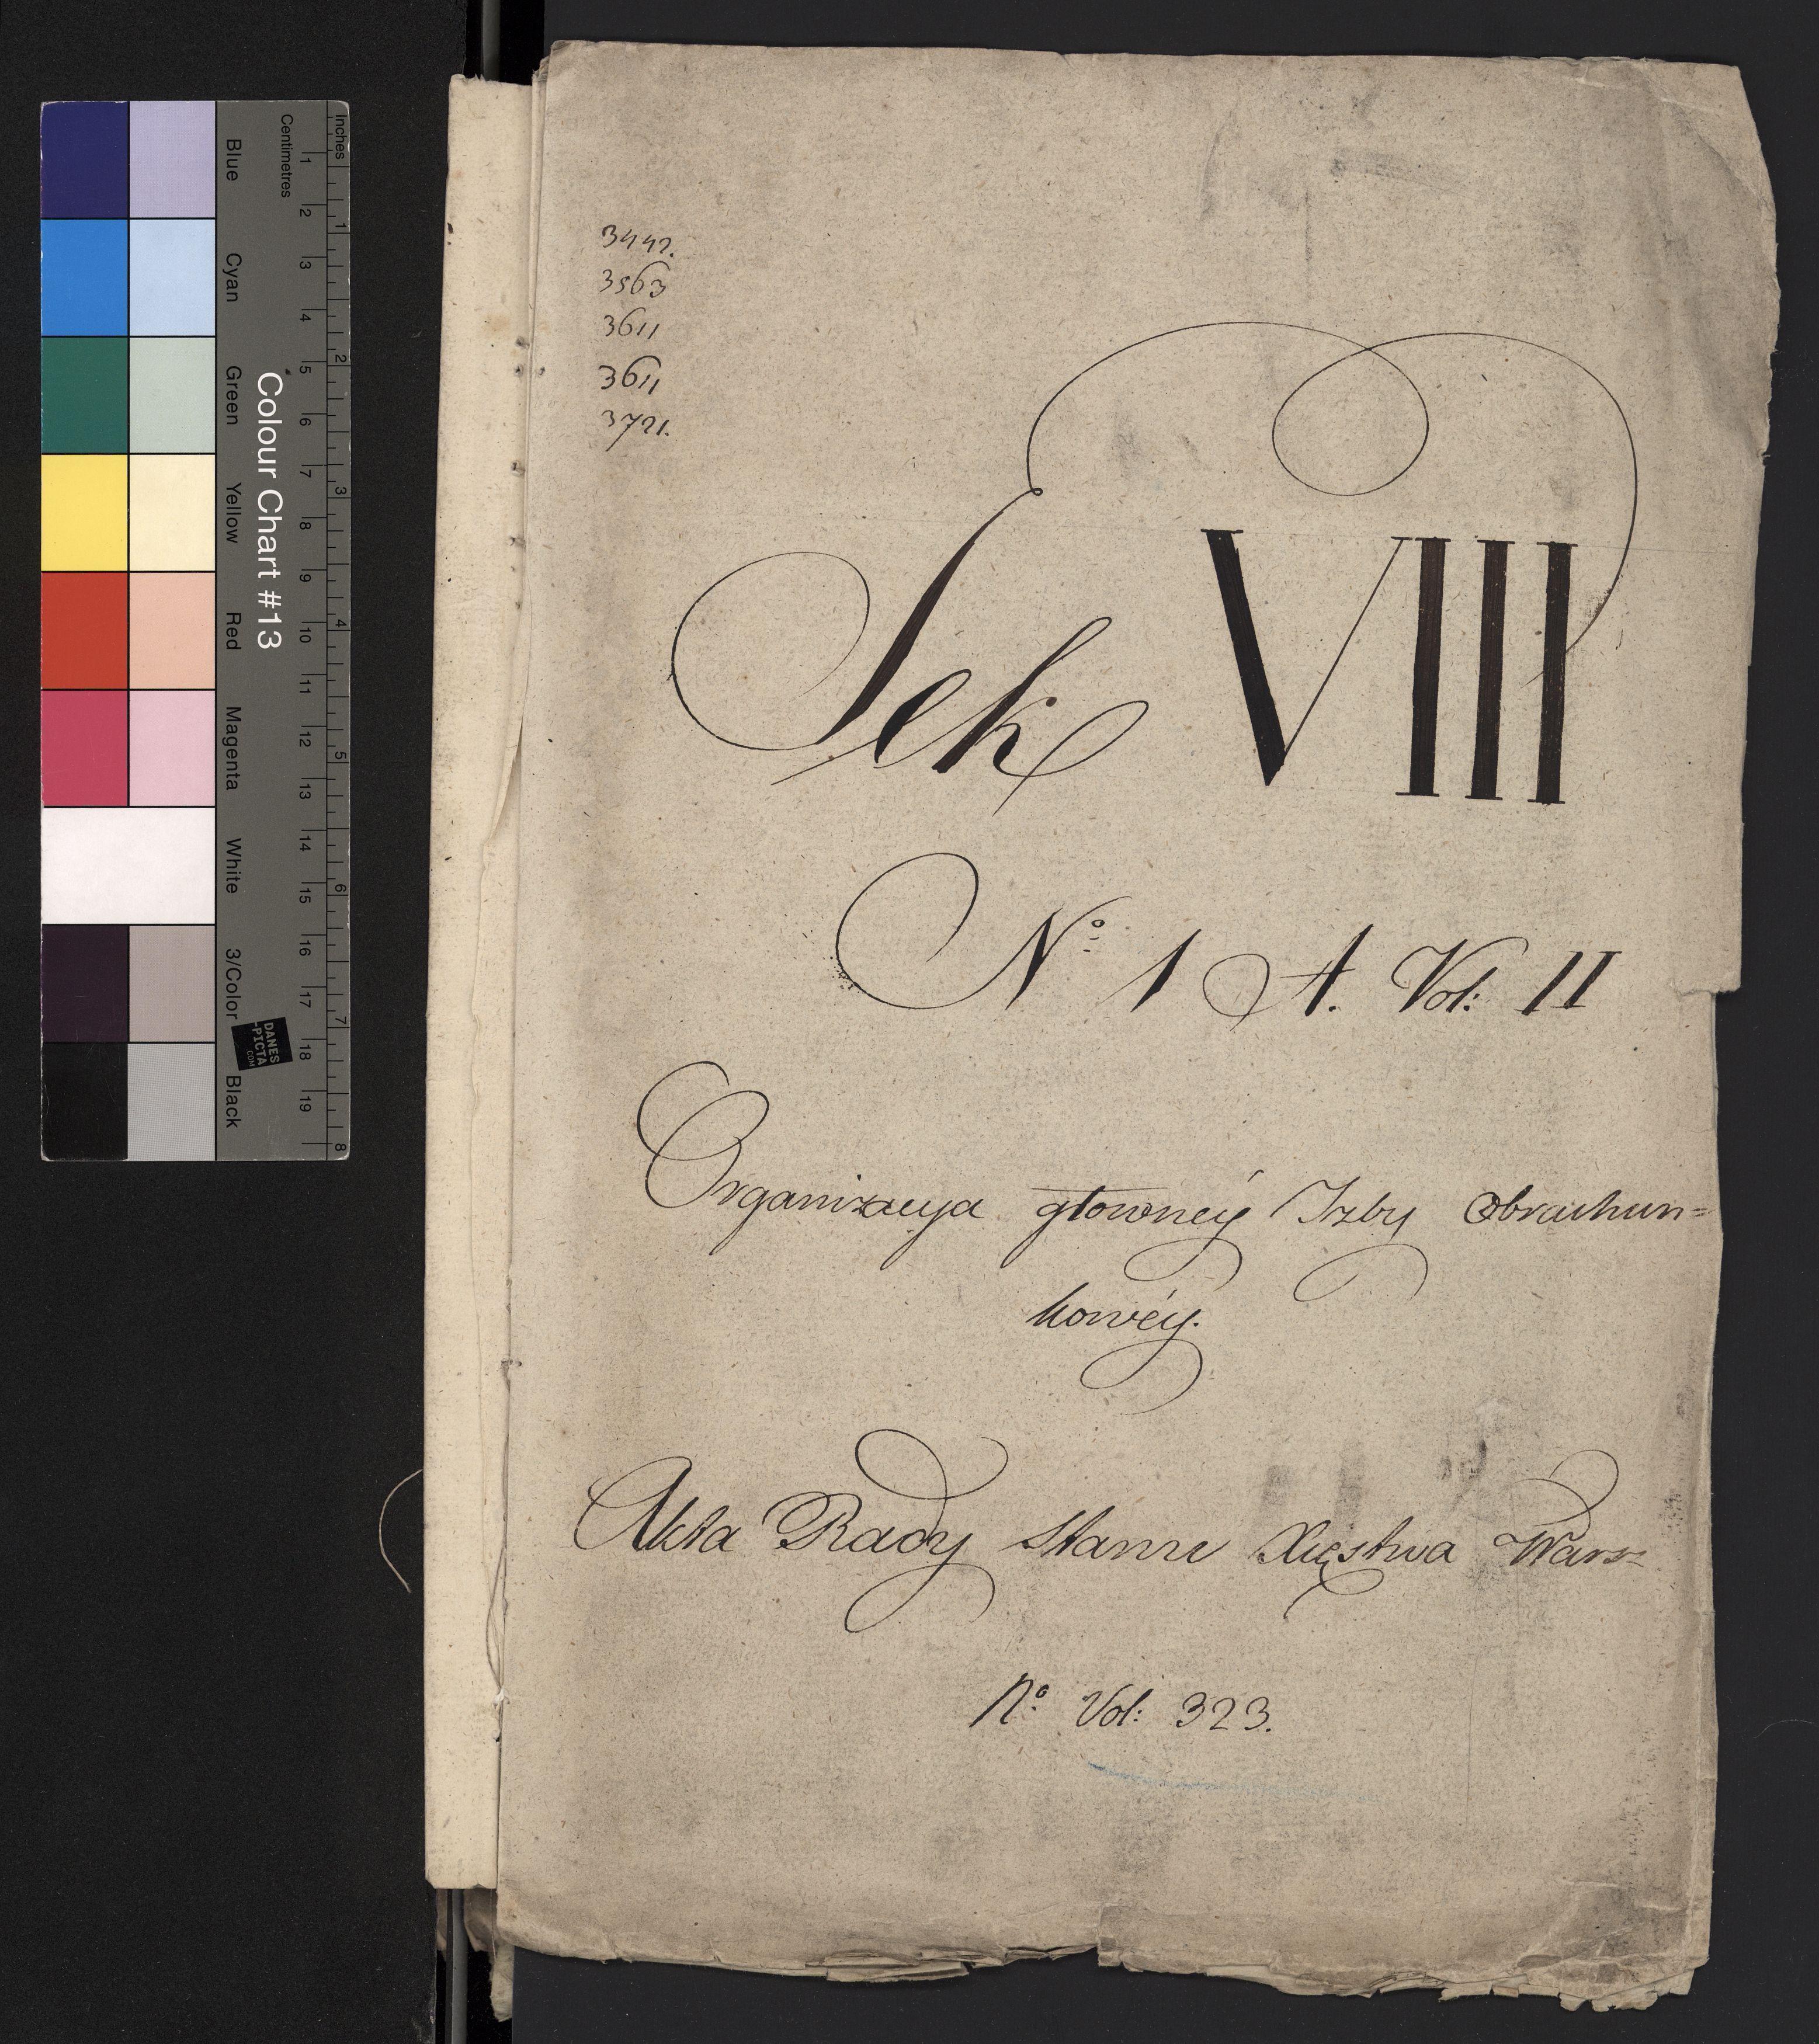 3442.
3563
3611
3611
3721.
Sek VIII
Nº 1 A. Vol: II
Organizacya głowney Izby Obrachun=
kowéy.
Akta Rady Stanu Xięstwa Warsz
Nº Vol: 323.
Colour Chart #13
Blue
Cyan
Green
Yellow
Red
Magenta
White
3/Color
Black
Inches
1 2 3 4 5 6 7 8
Centimetres
1 2 3 4 5 6 7 8 9 10 11 12 13 14 15 16 17 18 19
DANES
-PICTA
.COM